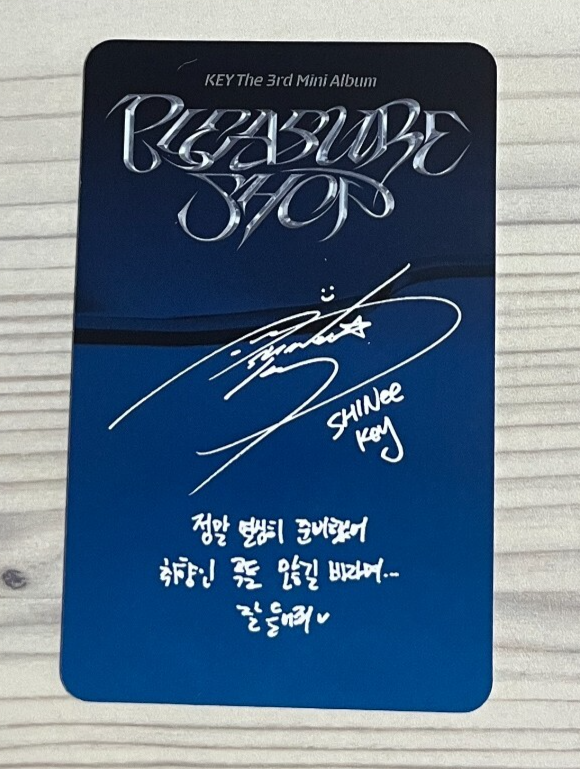 KEY The 3rd Mini Album
PLEASURE
SHOP
SHINee
KEY
정말 열심히 준비했어
취향인 곡들 있길 바라며...
잘 들어줘♡